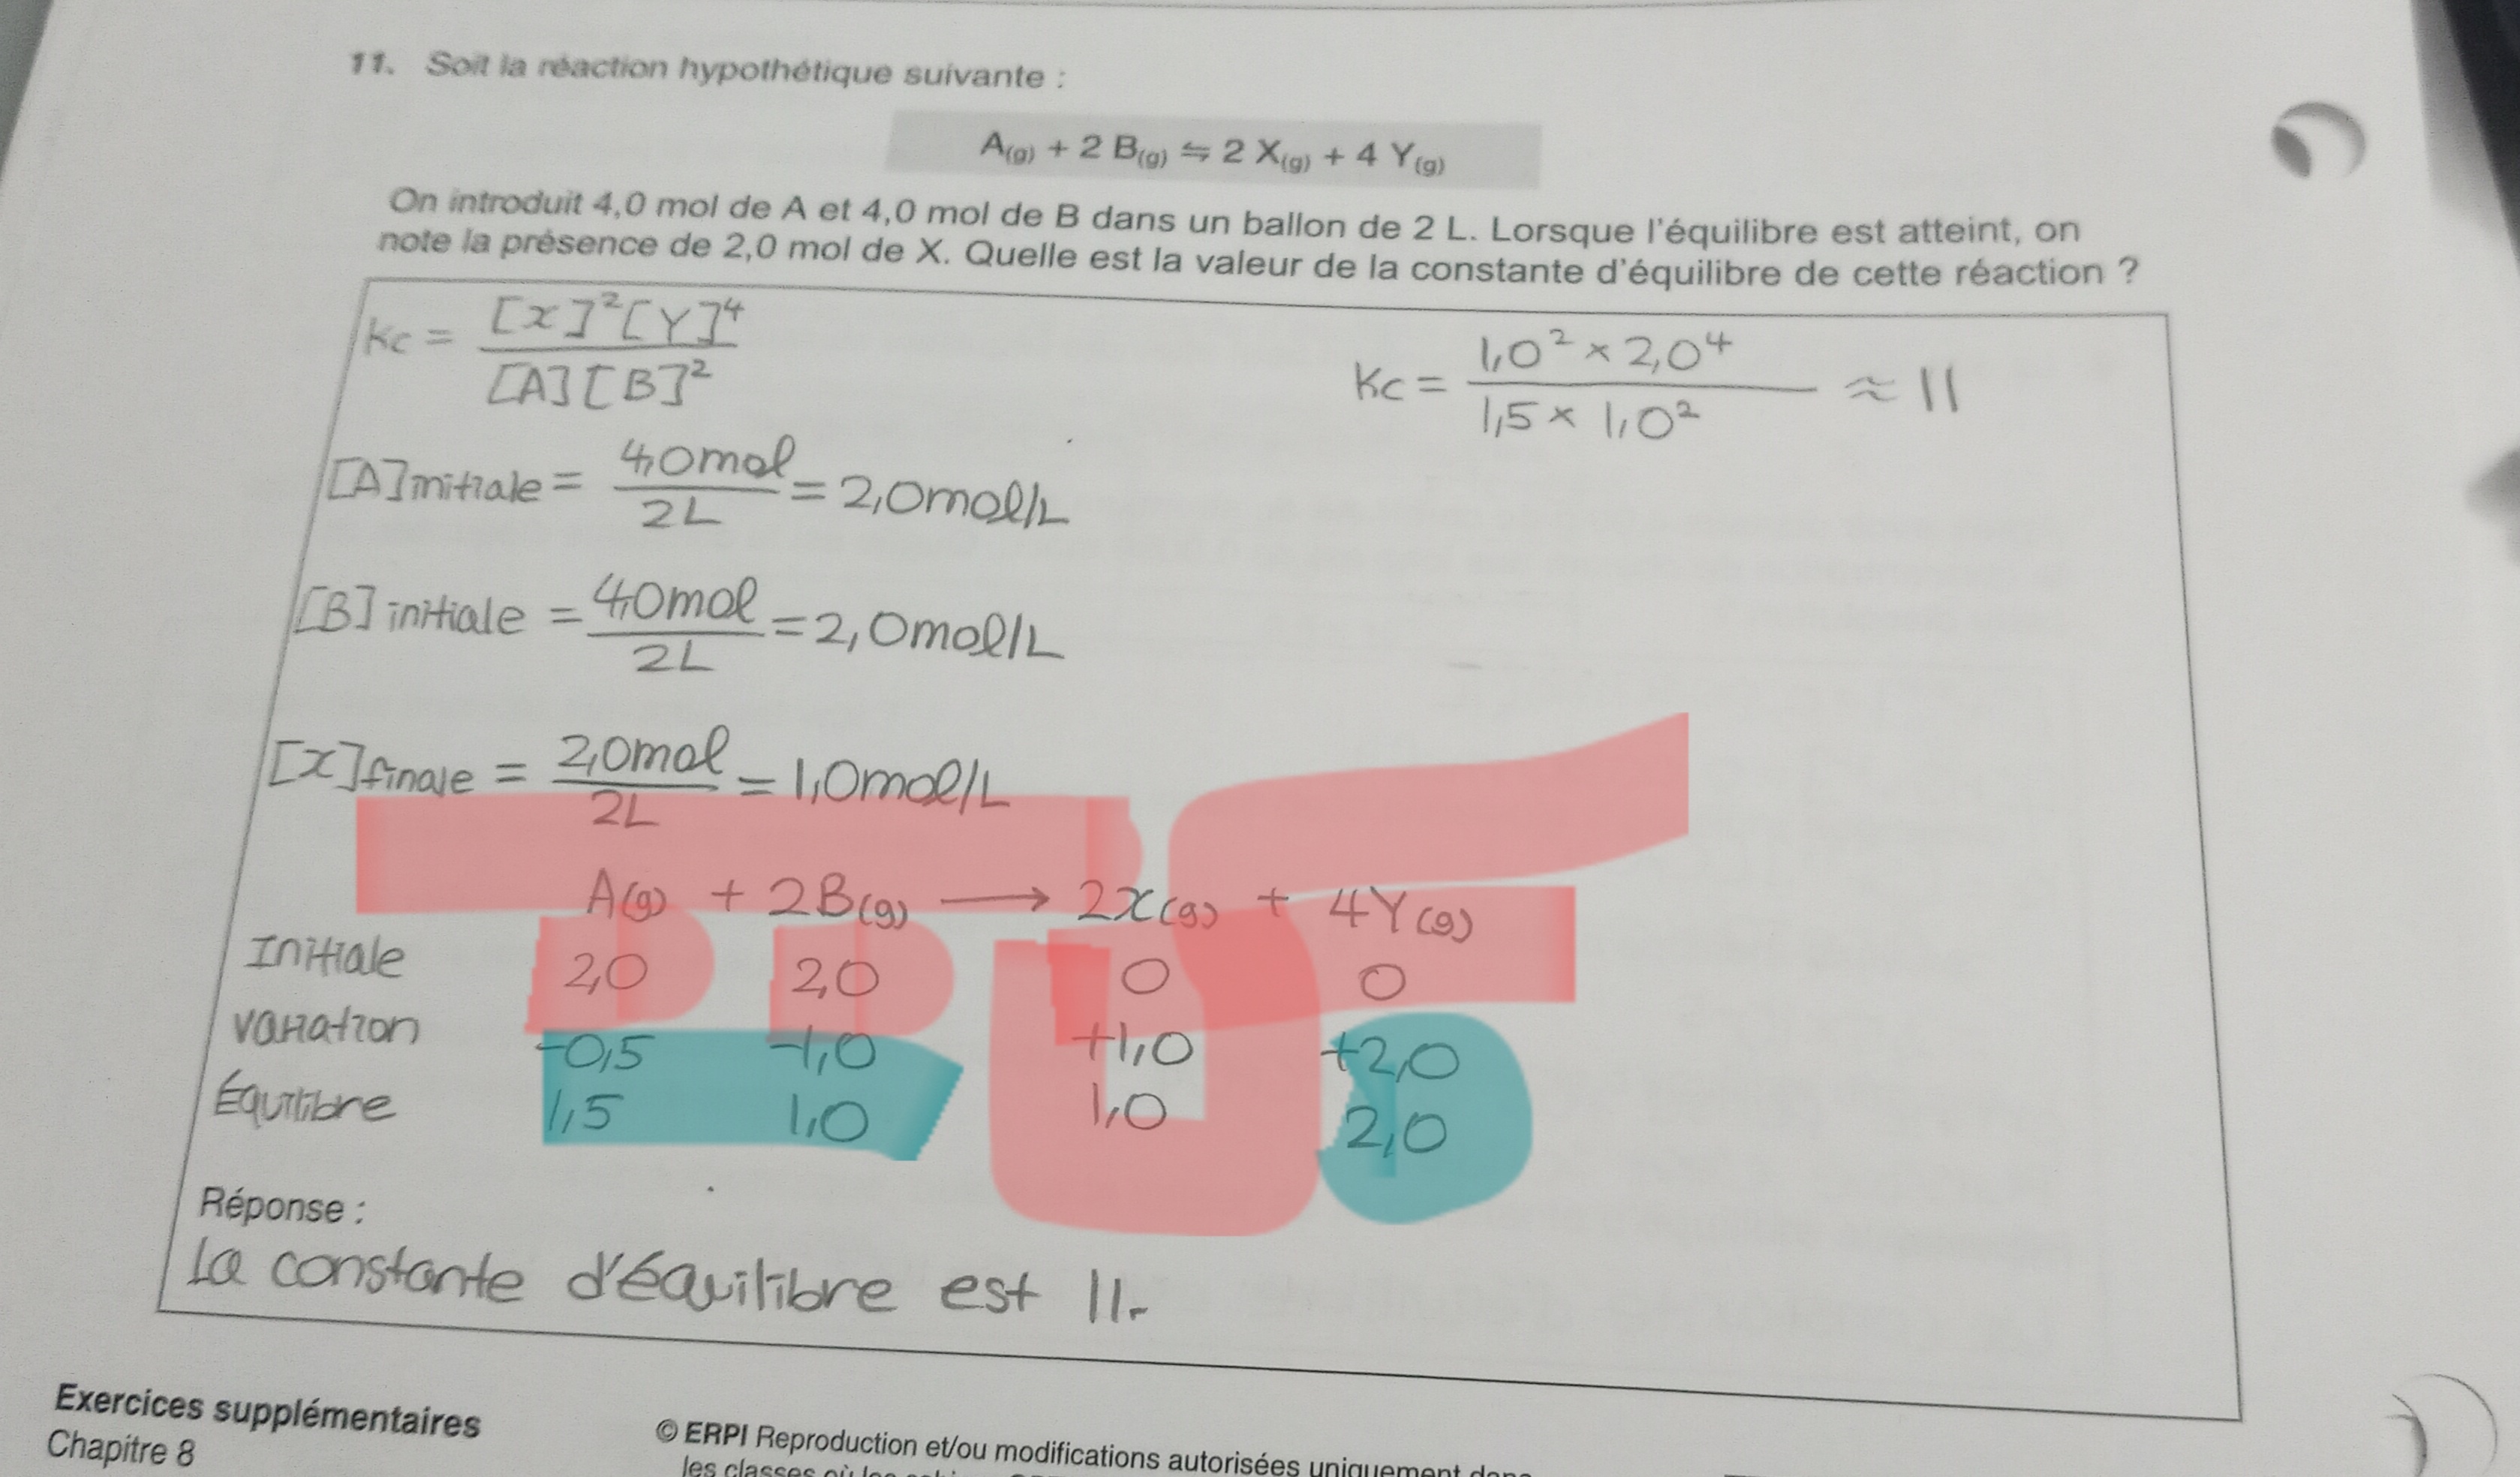 11. Soit la réaction hypothétique suivante :
A(g) + 2 B(g) ⇋ 2 X(g) + 4 Y(g)
On introduit 4,0 mol de A et 4,0 mol de B dans un ballon de 2 L. Lorsque l'équilibre est atteint, on
note la présence de 2,0 mol de X. Quelle est la valeur de la constante d'équilibre de cette réaction ?
Kc = [X]²[Y]⁴ / [A][B]²
Kc = 1,0² × 2,0⁴ / 1,5 × 1,0² ≈ 11
[A]initiale = 4,0mol / 2L = 2,0mol/L
[B]initiale = 4,0mol / 2L = 2,0mol/L
[X]finale = 2,0mol / 2L = 1,0mol/L
A(g) + 2B(g) ⟶ 2X(g) + 4Y(g)
Initiale 2,0 2,0 0 0
Variation -0,5 -1,0 +1,0 +2,0
Équilibre 1,5 1,0 1,0 2,0
Réponse :
La constante d'équilibre est 11.
Exercices supplémentaires
Chapitre 8
© ERPI Reproduction et/ou modifications autorisées uniquement dans
les classes où